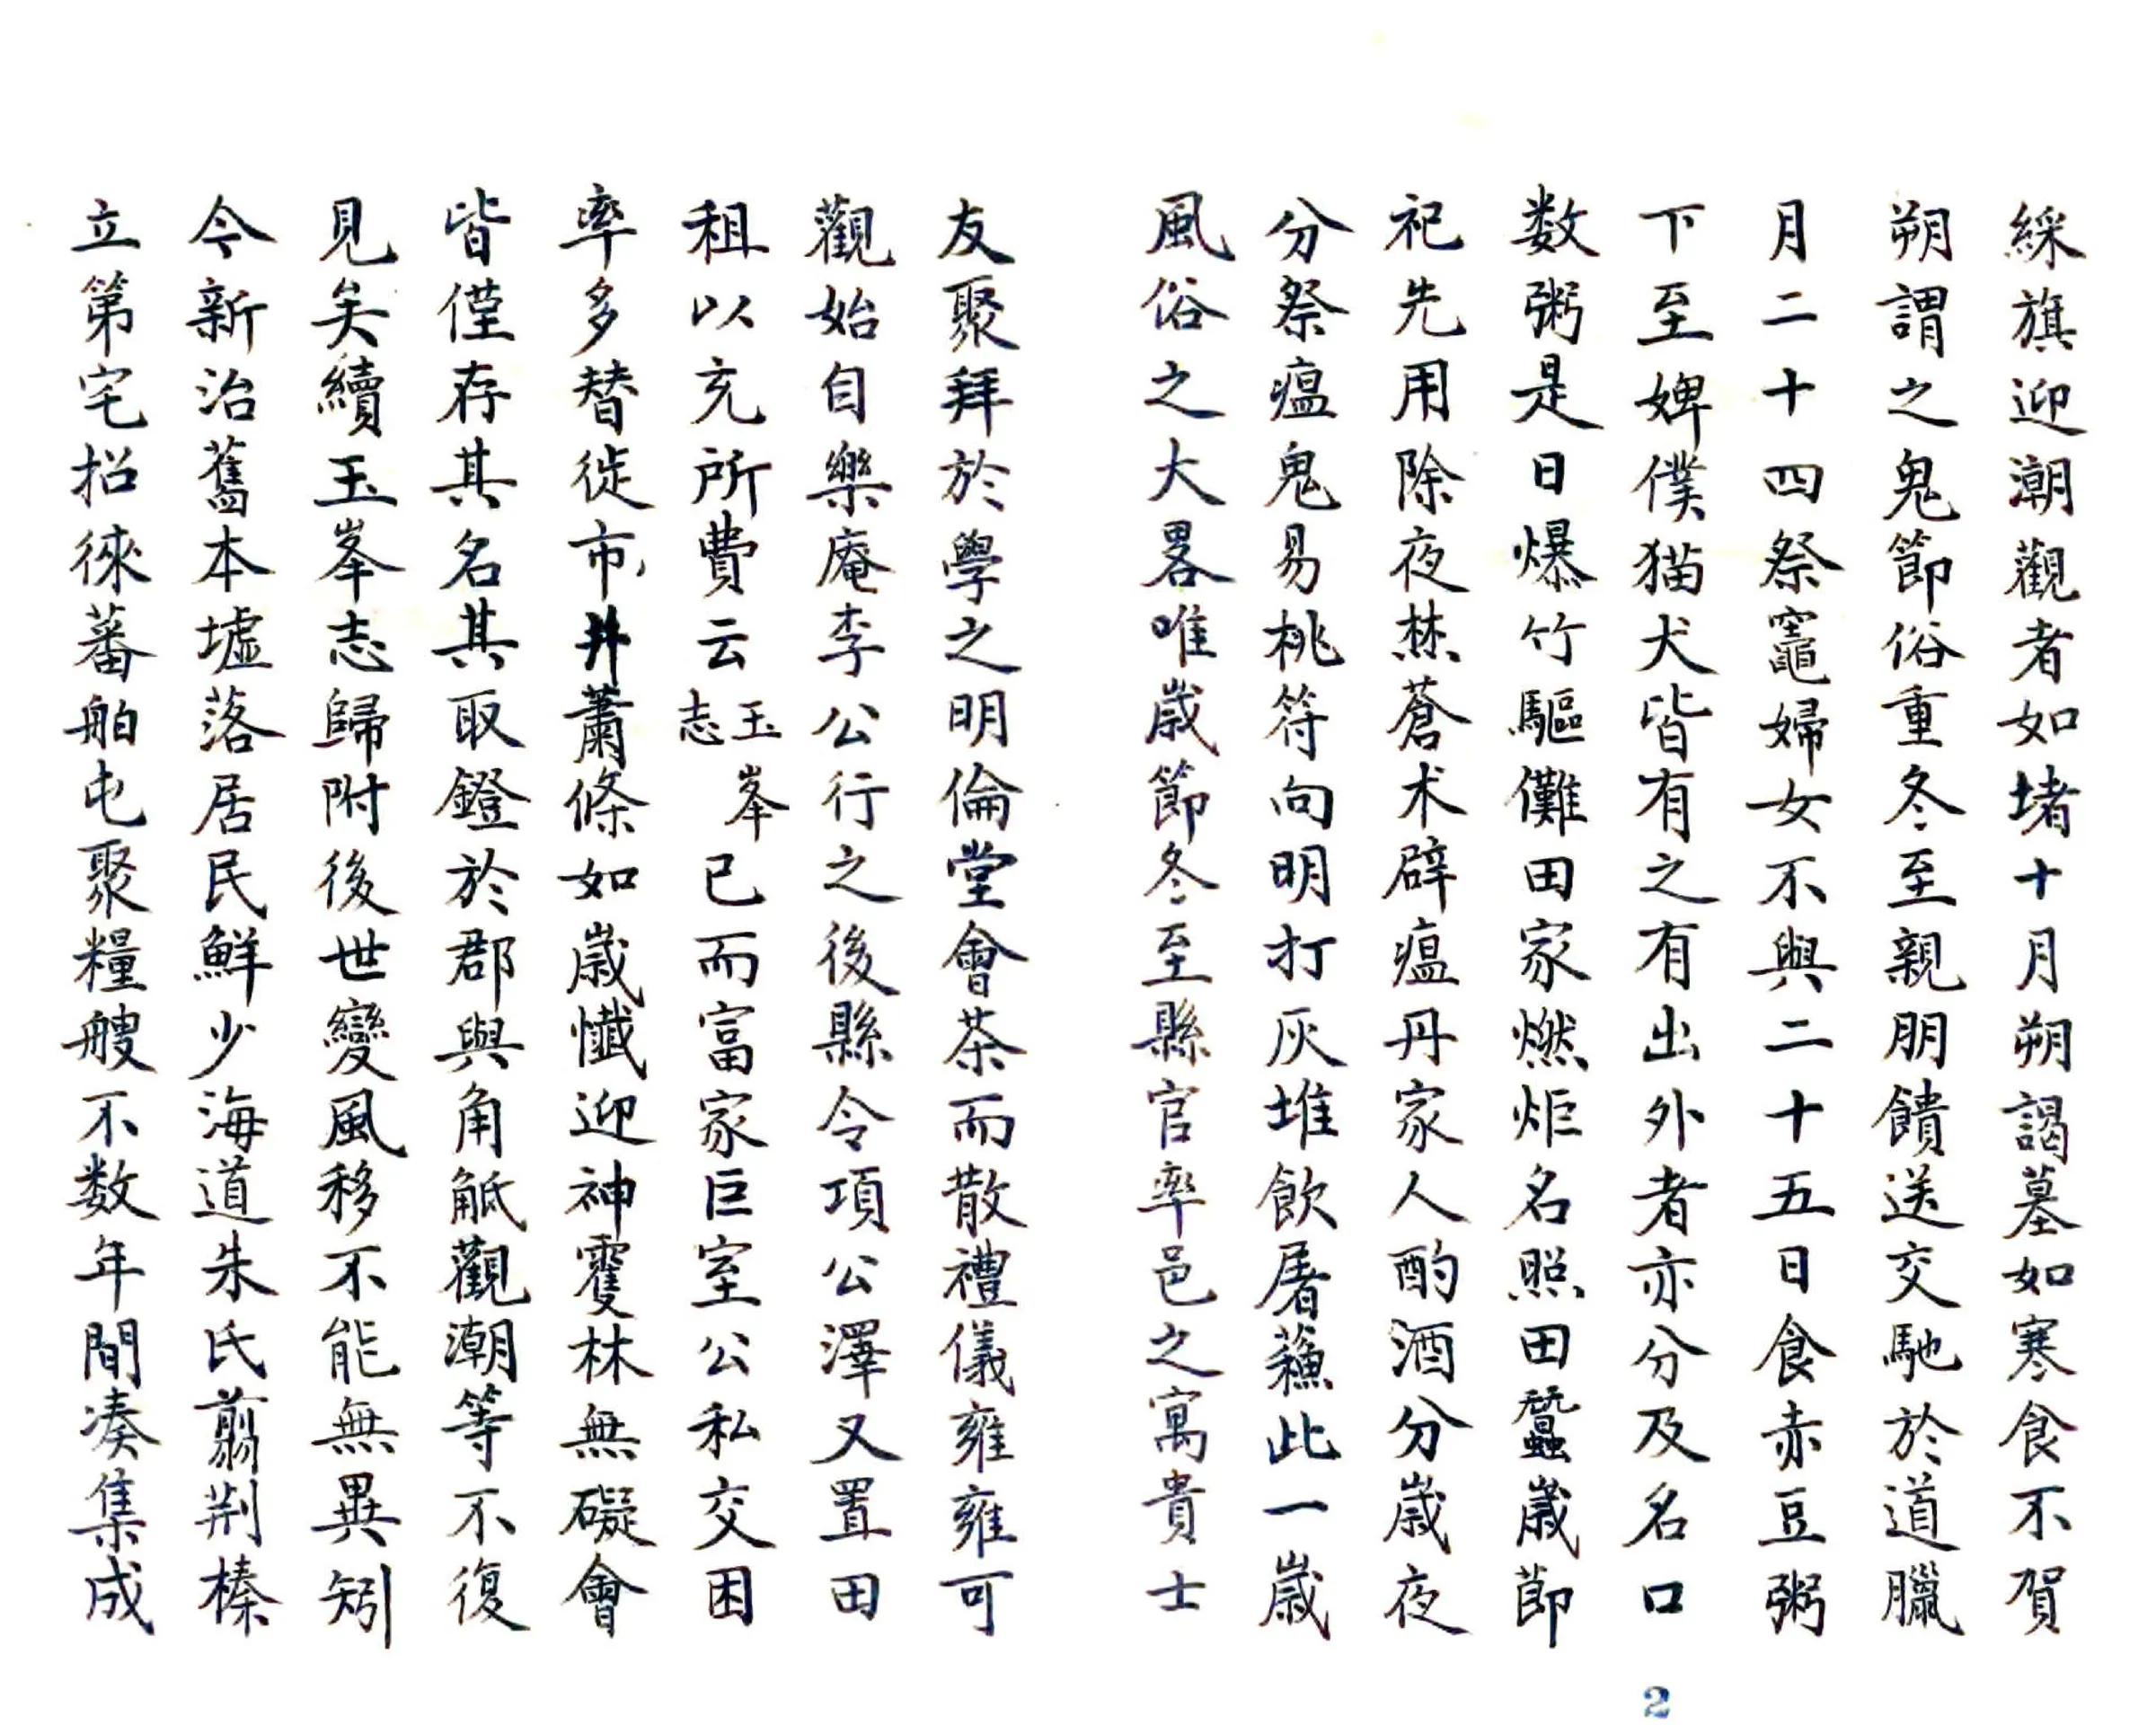 綵旗迎潮觀者如堵十月朔謁墓如寒食不賀
朔謂之鬼節俗重冬至親朋饋送交馳於道臘
月二十四祭竈婦女不與二十五日食赤豆粥
下至婢僕猫犬皆有之有出外者亦分及名口
数粥是日爆竹驅儺田家燃炬名照田蠶歲節
祀先用除夜焚蒼术辟瘟丹家人酌酒分歲夜
分祭瘟鬼易桃符向明打灰堆飲屠蘓此一歲
風俗之大畧唯歲節冬至縣官率邑之寓貴士
友聚拜於學之明倫堂會茶而散禮儀雍雍可
觀始自樂庵李公行之後縣令項公澤又置田
租以充所費云玉峯志已而富家巨室公私交困
率多替徙市井蕭條如歲懺迎神霍林無礙會
皆僅存其名其取鐙於郡與角觝觀潮等不復
見矣續玉峯志歸附後世變風移不能無異矧
今新治舊本墟落居民鮮少海道朱氏翦荆榛
立第宅招徠蕃舶屯聚糧艘不数年間凑集成
2